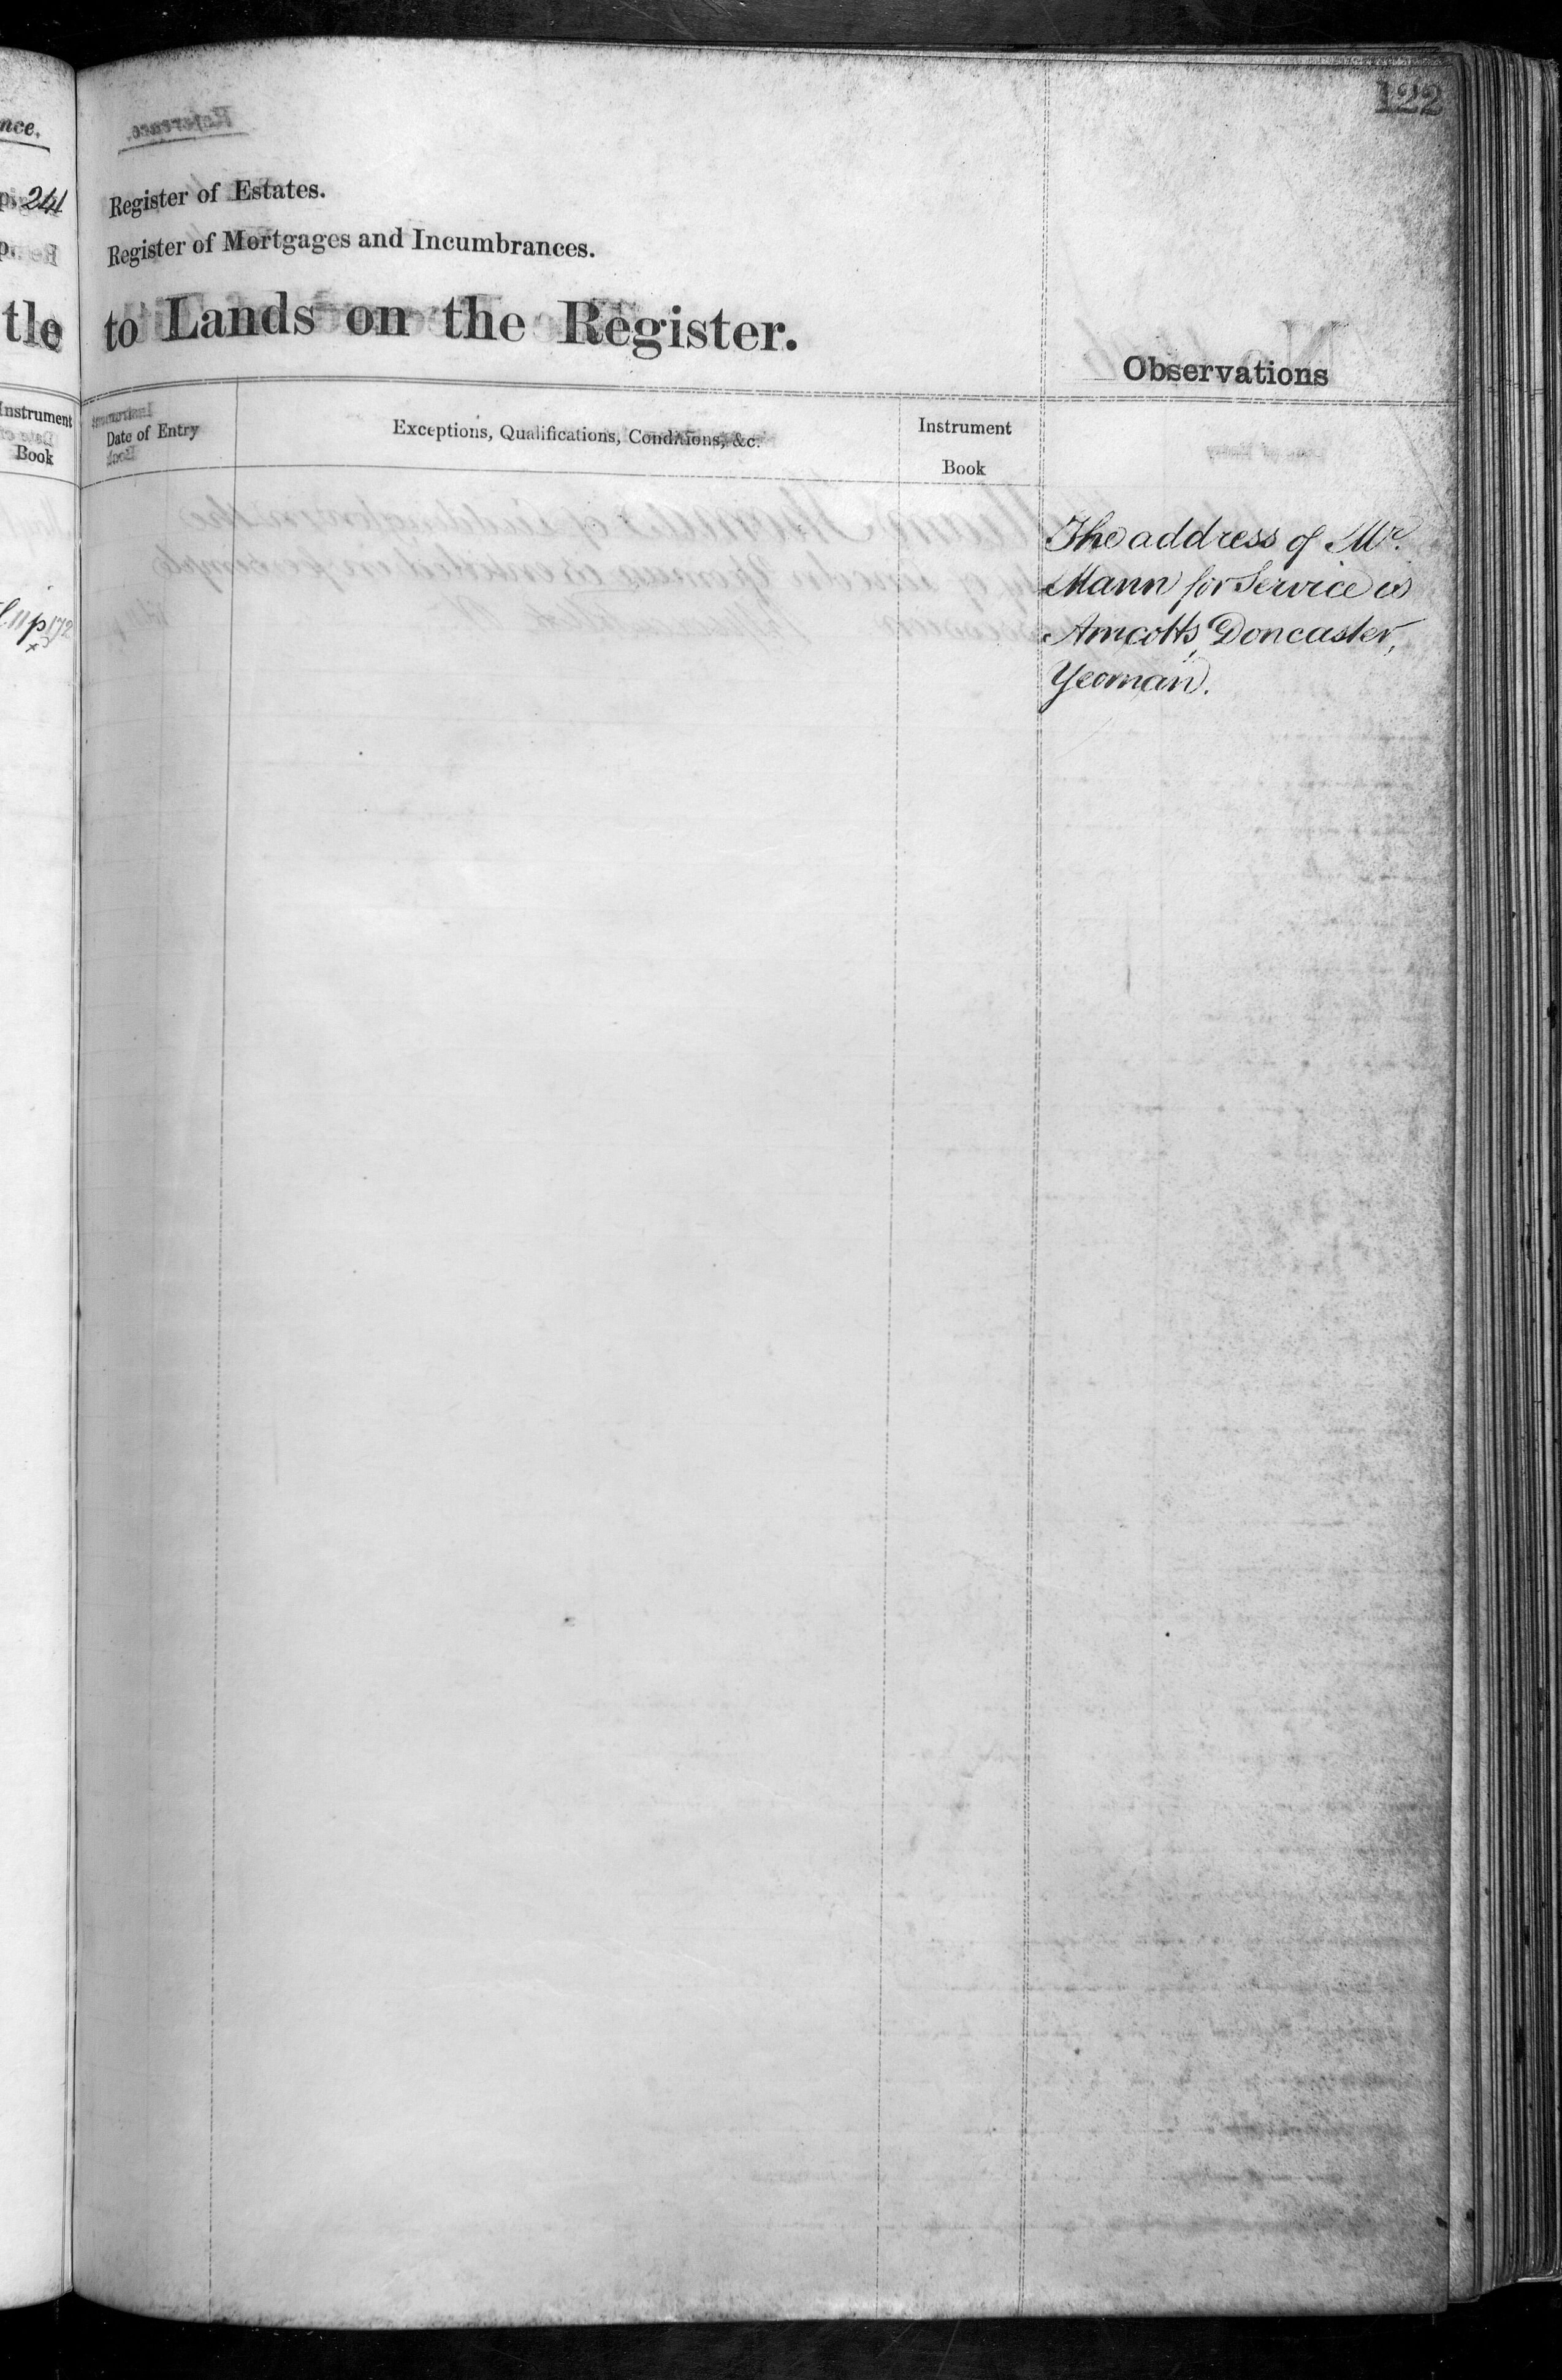 122
nce.
p. 241
p.
tle
Instrument
Book
p 172
Register of Estates.
Register of Mortgages and Incumbrances.
to Lands on the Register.
Observations
Date of Entry
Exceptions, Qualifications, Conditions, &c.
Instrument
Book
The address of Mr.
Mann for Service is
Amcotts, Doncaster,
Yeoman.